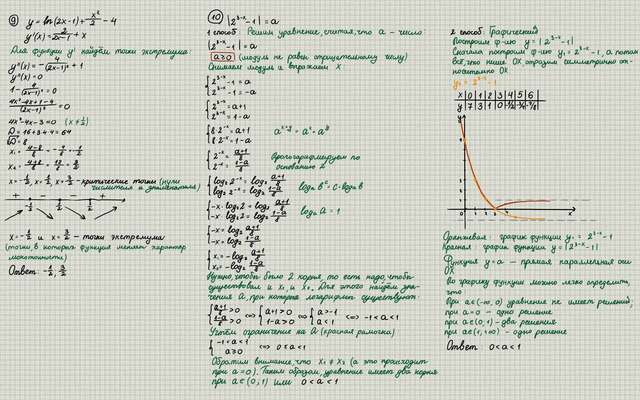 ⑨ y = ln(2x-1) + x²/2 - 4
y'(x) = 2/(2x-1) + x
Для функции y' найдём точки экстремума
y''(x) = - 4/(2x-1)² + 1
y''(x) = 0
1 - 4/(2x-1)² = 0
(4x²-4x+1-4)/(2x-1)² = 0
4x²-4x-3=0 (x≠½)
D = 16+3·4·4 = 64
√D = 8
x = -½, x = ½, x = 3/2 - критические точки (нули числителя и знаменателя)
+ - - +
-½ ½ 3/2
x = -½ и x = 3/2 - точки экстремума
(точки, в которых функция меняет характер
монотонности)
Ответ: -½, 3/2
⑩ |2^(3-x) - 1| = a
1 способ Решим уравнение, считая, что a - число
|2^(3-x) - 1| = a
a≥0 (модуль не равен отрицательному числу)
Снимаем модуль и выражаем x
2^(3-x) - 1 = a
2^(3-x) - 1 = -a
2^(3-x) = a+1
2^(3-x) = 1-a
8·2^(-x) = a+1
8·2^(-x) = 1-a
2^(-x) = (a+1)/8
2^(-x) = (1-a)/8
Прологарифмируем по
основанию 2
log₂ 2^(-x) = log₂ (a+1)/8
log₂ 2^(-x) = log₂ (1-a)/8
-x·log₂ 2 = log₂ (a+1)/8
-x·log₂ 2 = log₂ (1-a)/8
-x = log₂ (a+1)/8
-x = log₂ (1-a)/8
x₁ = -log₂ (a+1)/8
x₂ = -log₂ (1-a)/8
Нужно, чтобы было 2 корня, то есть надо, чтобы
существовал и x₁ и x₂. Для этого найдём зна-
чения a, при которых логарифмы существуют:
(a+1)/8 > 0
(1-a)/8 > 0 ⇔ a+1>0
1-a>0 ⇔ a>-1
a<1 ⇔ -1<a<1
Учтём ограничение на a (красная рамочка)
-1<a<1
a≥0 ⇔ 0≤a<1
Обратим внимание, что x₁ ≠ x₂ (а это происходит
при a=0). Таким образом, уравнение имеет два корня
при a∈(0,1) или 0<a<1
2 способ: Графический
Построим ф-ию y = |2^(3-x) - 1|
Сначала построим ф-ию y₁ = 2^(3-x) - 1, а потом
всё, что ниже OX отразим симметрично от-
носительно OX
y₁ = 2^(3-x) - 1
x 0 1 2 3 4 5 6
y 7 3 1 0 -½ -¾ -⅞
Оранжевая: график функции y₁ = 2^(3-x) - 1
Красная: график функции y = |2^(3-x) - 1|
Функция y=a - прямая, параллельная оси
OX
По графику функции можно легко определить,
что
При a∈(-∞,0) уравнение не имеет решений;
при a=0 - одно решение
при a∈(0,1) - два решения
при a∈[1,+∞) - одно решение
Ответ: 0<a<1